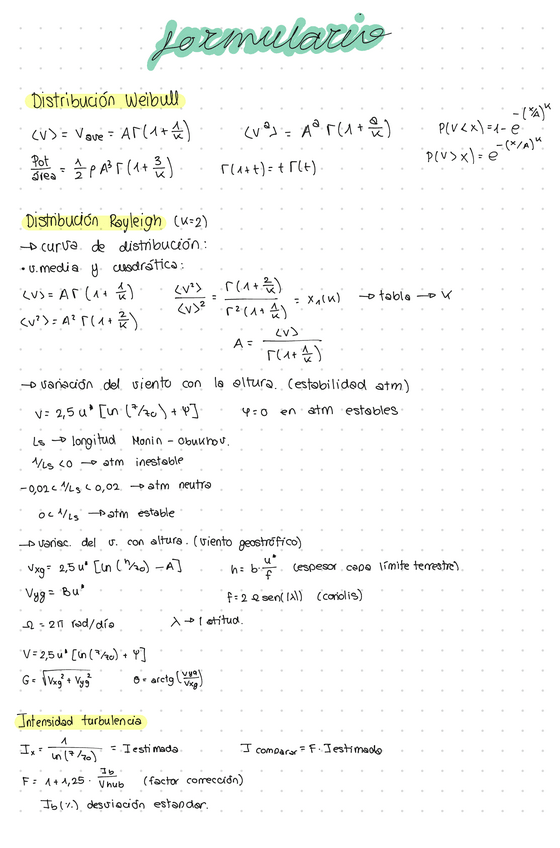 formulario
Distribución Weibull
⟨V⟩ = Vave = AΓ(1+1/K)    ⟨V²⟩ = A²Γ(1+2/K)    P(V<x) = 1-e^-(x/A)^K
Pot/área = 1/2 ρ A³ Γ(1+3/K)    Γ(1+t) = t Γ(t)    P(V>x) = e^-(x/A)^K
Distribución Rayleigh (K=2)
→ curva de distribución:
• v.media y cuadrática:
⟨V⟩ = AΓ(1+1/K)    ⟨V²⟩/⟨V⟩² = Γ(1+2/K)/Γ²(1+1/K) = X₁(K) → tabla → K
⟨V²⟩ = A² Γ(1+2/K)
A = ⟨V⟩/Γ(1+1/K)
→ variación del viento con la altura. (estabilidad atm)
V = 2,5 u* [ln(z/z0) + Ψ]    Ψ=0 en atm estables
Ls → longitud Monin-Obukhov.
1/Ls <0 → atm inestable
-0,02 < 1/Ls < 0,02 → atm neutra
0 < 1/Ls → atm estable
→ variac. del v. con altura. (viento geostrófico)
Vxg = 2,5 u* [ln(h/z0) - A]    h = b·u*/f (espesor capa límite terrestre).
Vyg = Bu*    f = 2 Ω sen(|λ|) (coriolis)
Ω = 2π rad/día    λ → latitud.
V = 2,5 u* [ln(z/z0) + Ψ]
G = √(Vxg² + Vyg²)    θ = arctg(Vyg/Vxg)
Intensidad turbulencia
Ix = 1/ln(z/z0) = I estimada    I comparar = F · I estimada
F = 1+1,25 · Ib/Vhub (factor corrección)
Ib(%) desviación estandar.